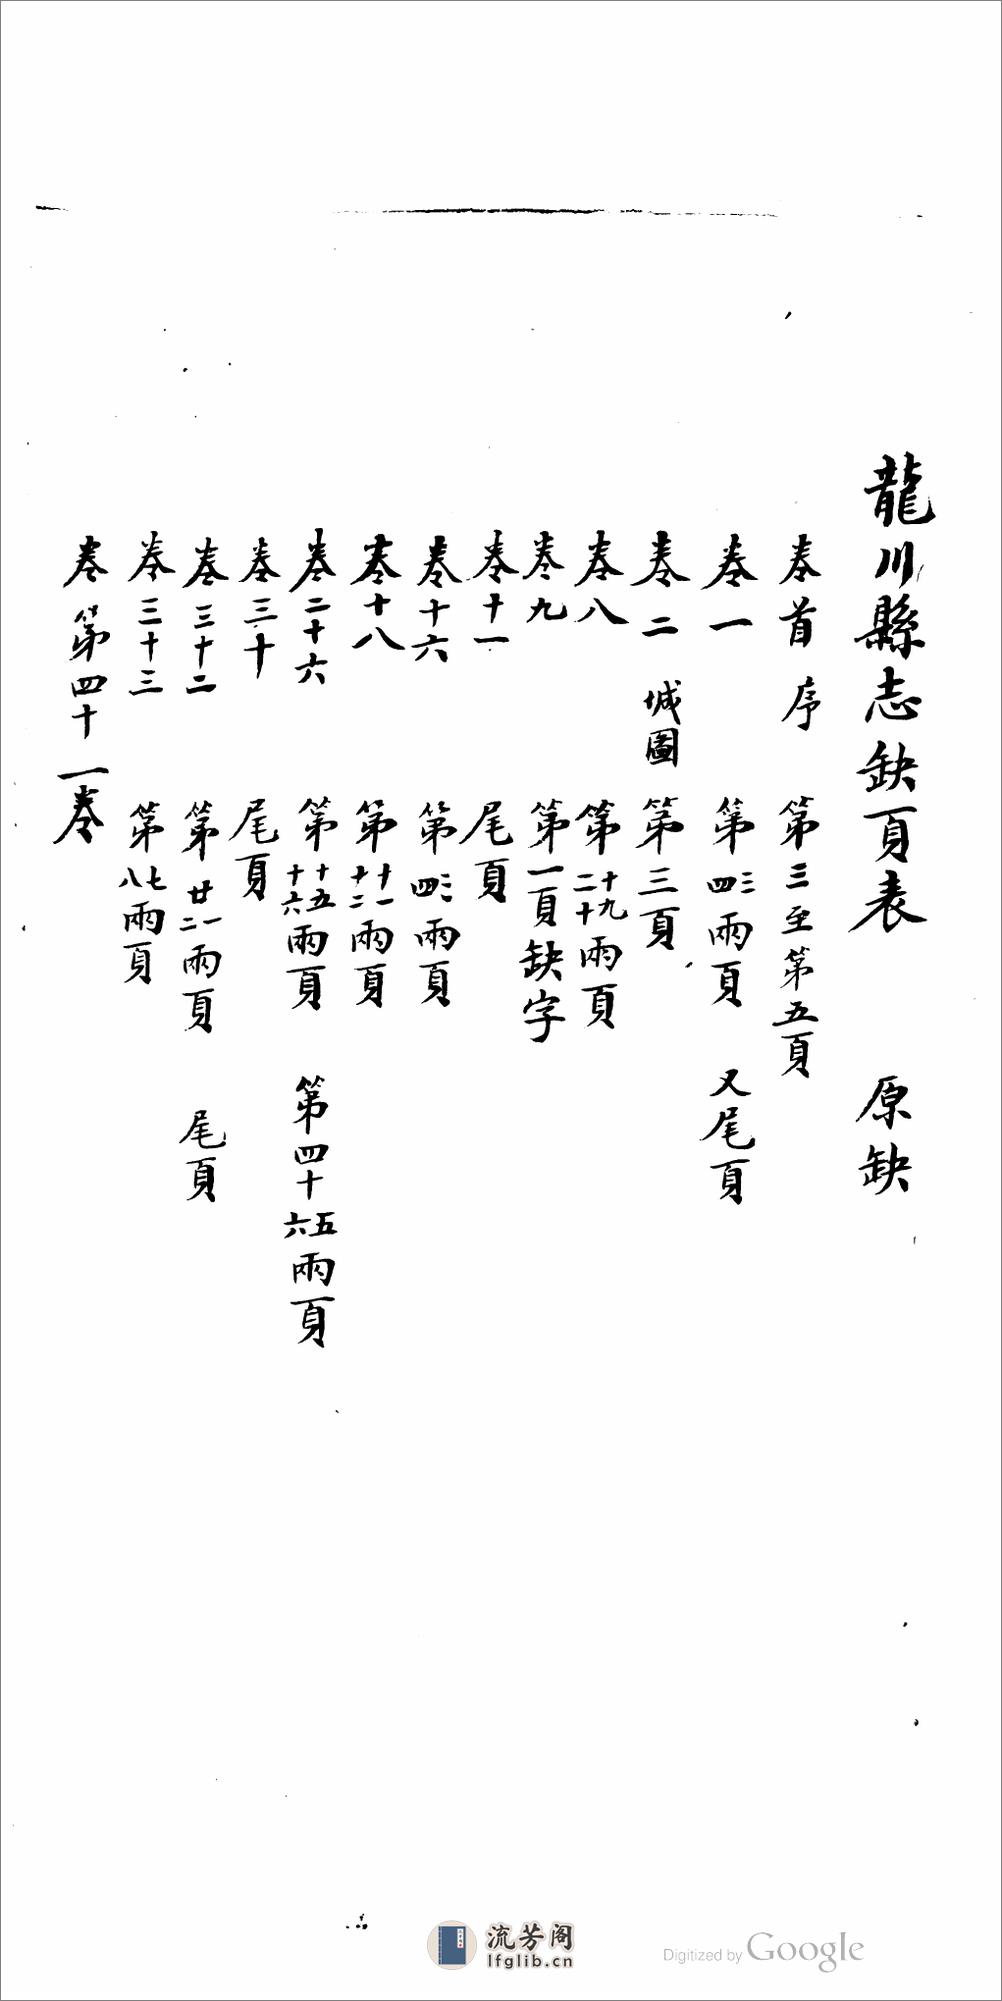 龍川縣志缺頁表 原缺
卷首 序 第三至第五頁
卷一 第三四兩頁 又尾頁
卷二 城圖 第三頁
卷八 第十九二十兩頁
卷九 第一頁缺字
卷十一 尾頁
卷十六 第三四兩頁
卷十八 第十一十二兩頁
卷二十六 第十五十六兩頁 第四十五六兩頁
卷三十 尾頁
卷三十二 第廿一二兩頁 尾頁
卷三十三 第七八兩頁
卷第四十一卷
流芳阁
lfglib.cn
Digitized by Google